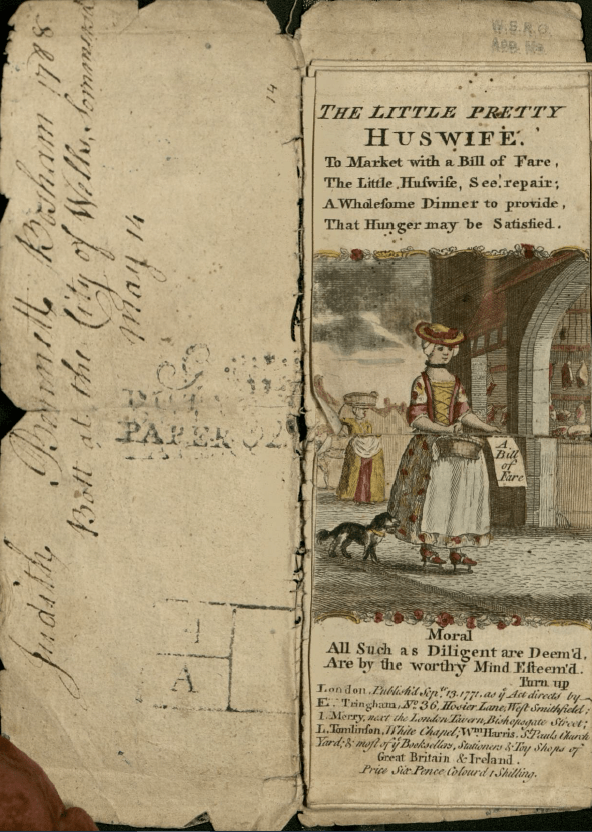 Judith Bennett Bosham 1788
Bott at the City of Wells, Sommersett
May 14
14
PAPER
A
W.S.R.O.
THE LITTLE PRETTY
HUSWIFE.
To Market with a Bill of Fare,
The Little Huſwife, See! repair;
A Wholeſome Dinner to provide,
That Hunger may be Satisfied.
A
Bill
of
Fare
Moral
All Such as Diligent are Deem'd,
Are by the worthy Mind Eſteem'd.
Turn up
London. Publiſh'd Sepr. 13. 1771. as ye Act directs by
E. Tringham, No. 36, Hoſier Lane, Weſt Smithfield;
I. Merry, next the London Tavern, Biſhopsgate Street;
L. Tomlinſon, White Chapel; Wm. Harris. St. Pauls Church
Yard; & moſt of ye Bookſellers, Stationers & Toy Shops of
Great Britain & Ireland.
Price Six Pence Colour'd 1 Shilling.